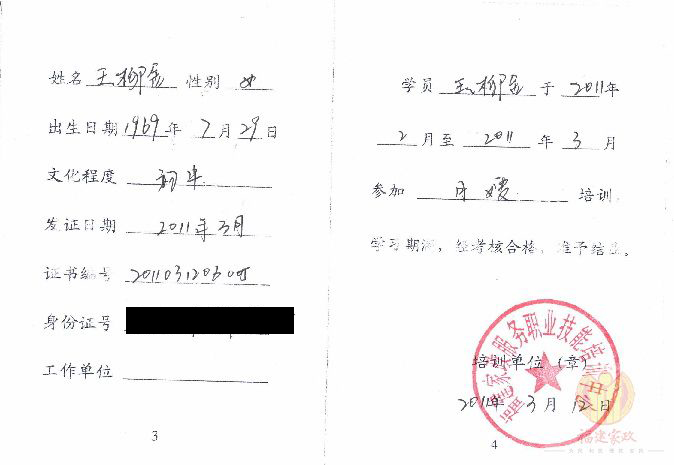 姓名 王柳金 性别 女
出生日期 1969 年 7 月 29 日
文化程度 初中
发证日期 2011年3月
证书编号
身份证号
工作单位
3
学员 王柳金 于 2011年
2 月至 2011 年 3 月
参加 月嫂 培训,
学习期满,经考核合格,准予结业。
福建家政服务职业技能培训中心
培训单位(章)
2011年 3 月 12 日
4
福建家政